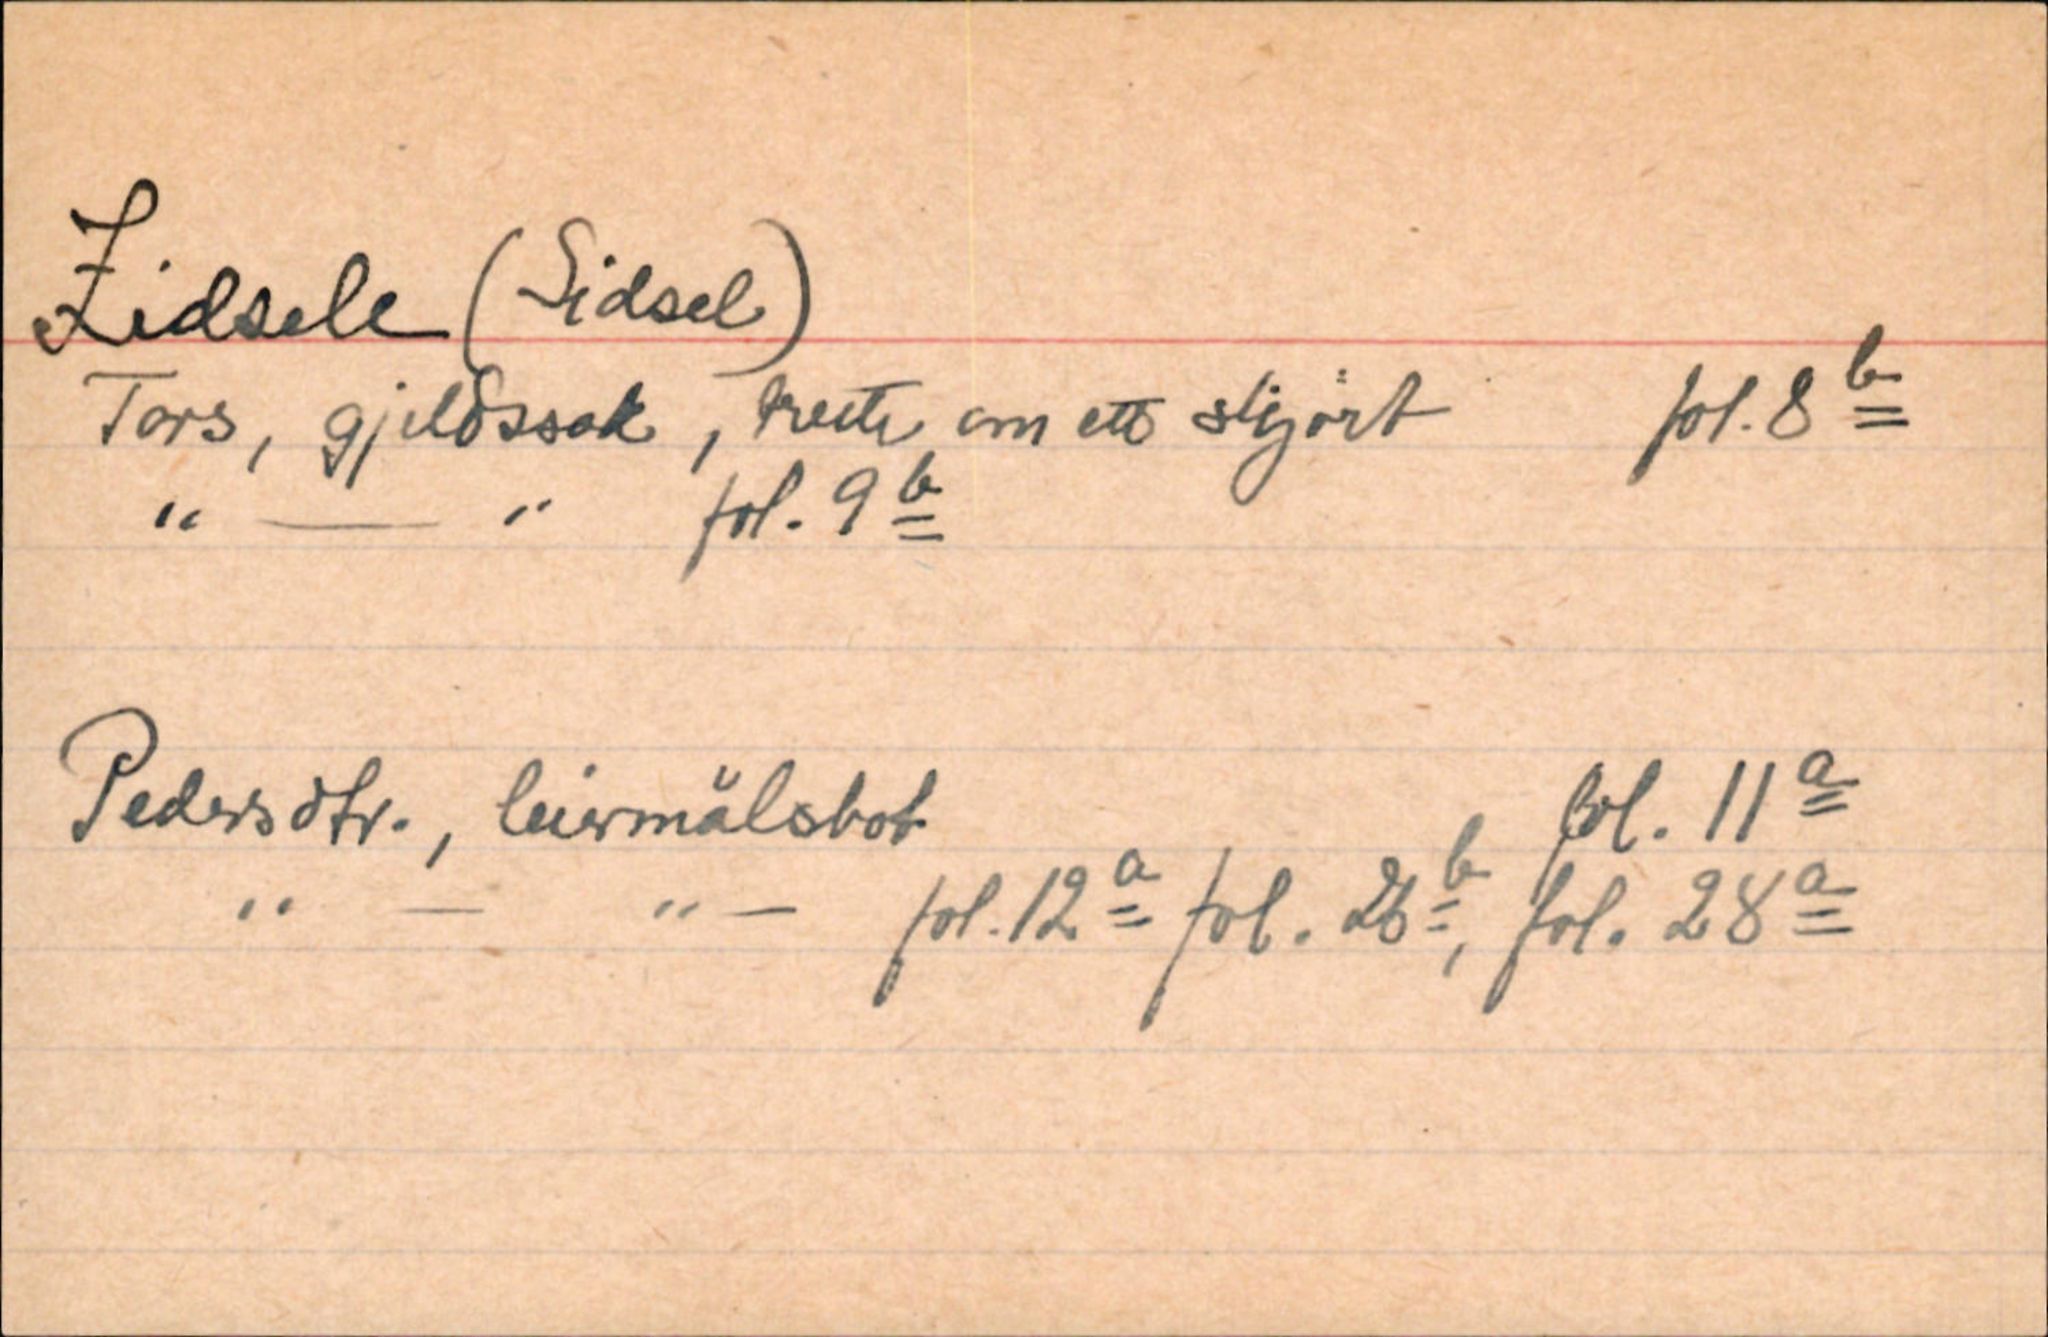 Zidsele (Sidsel)
Tors, gjeldssak, trette om ett skjört fol. 8 b
" — " fol. 9 b
Pedersdtr., leiermålsbot fol. 11 a
" — " — fol. 12 a fol. 26 b, fol. 28 a